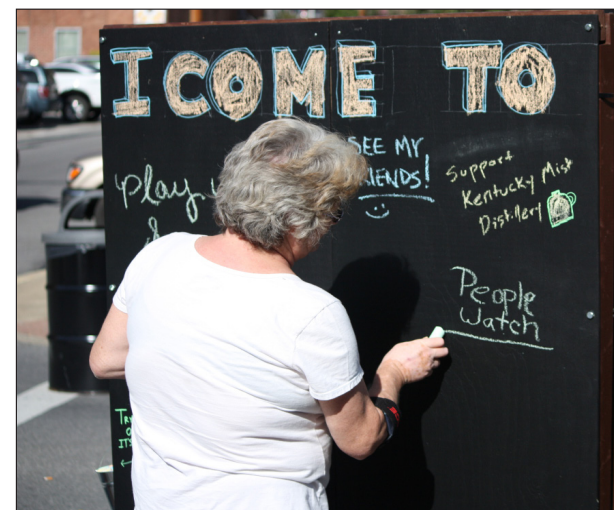 I COME TO
play
&
SEE MY
Support
Kentucky Mist
Distillery
People
Watch